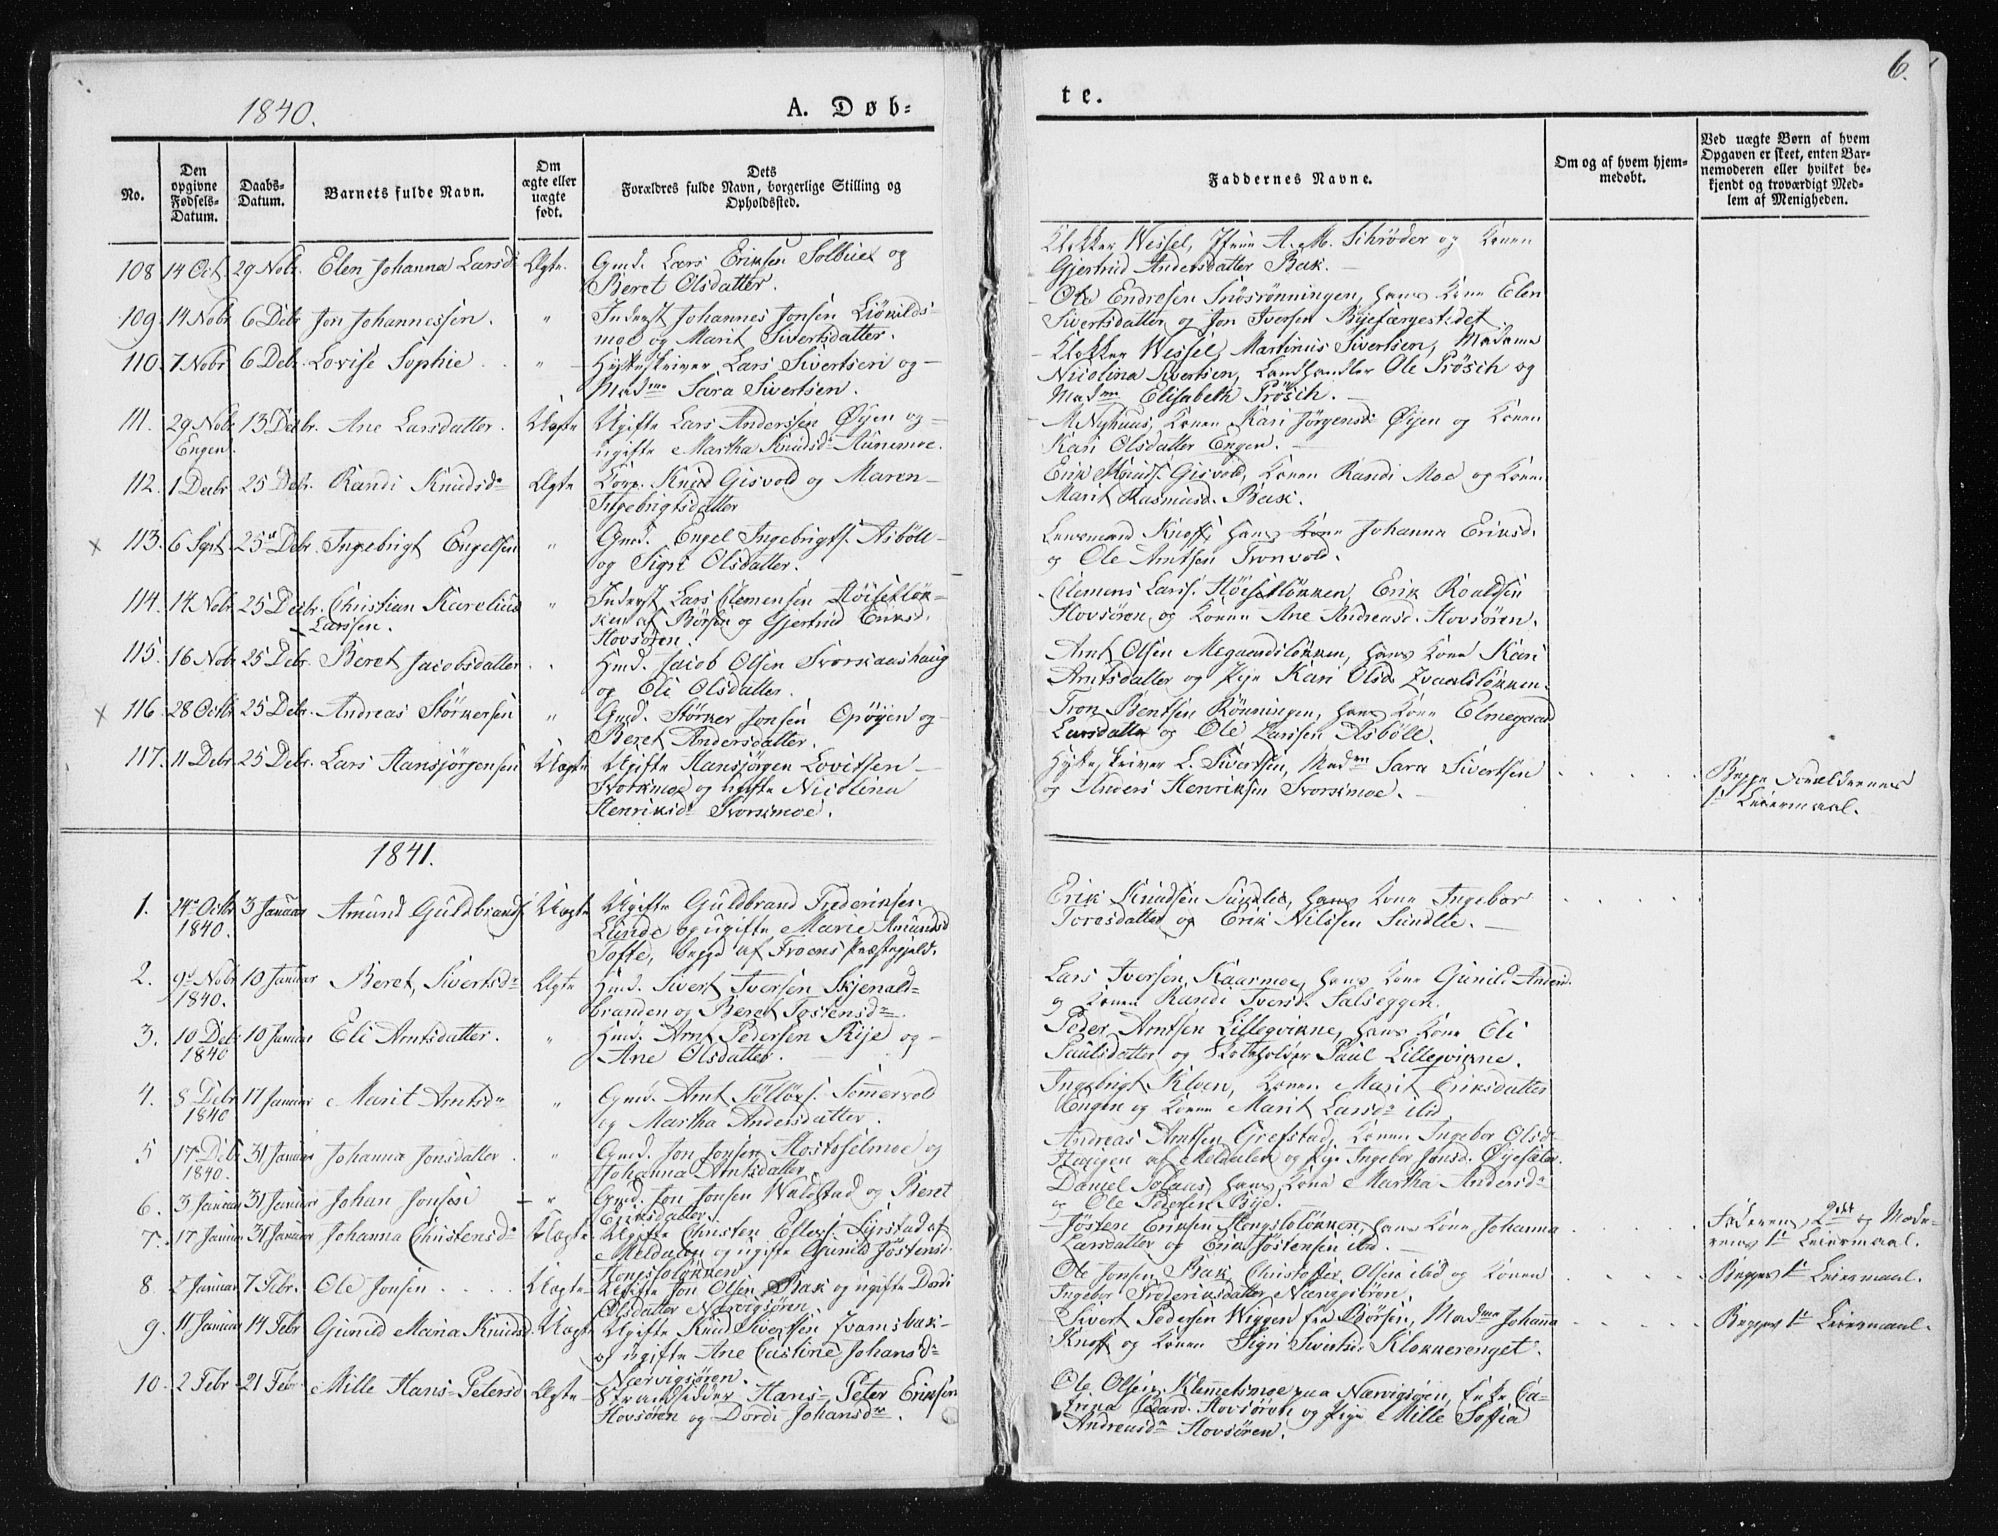 6.
1840.
A. Døb=
te.
No.
Den opgivne Fødsels-Datum.
Daabs-Datum.
Barnets fulde Navn.
Om ægte eller uægte født.
Dets Forældres fulde Navn, borgerlige Stilling og Opholdssted.
Faddernes Navne.
Om og af hvem hjemmedøbt.
Ved uægte Børn af hvem Opgaven er skeet, enten Barnemoderen eller hvilket bekjendt og troværdigt Medlem af Menigheden.
108 14 Oct. 29 Nobr. Elen Johanna Larsd. Ægte.
Gmd. Lars Eriksen Solbue og
Beret Olsdatter.
Klokker Wessel, Jfrue A. M. Schrøder og Konen
Gjertrud Andersdatter Bak.
109. 14 Nobr 6 Debr Jon Johannessen. "
Inderst Johannes Jonsen
moe og Marit Sivertsdatter.
Ole Endresen Snösrönningen, hans Kone Elen
Sivertsdatter og Jon Iversen
110. 7 Nobr 6 Debr. Lovise Sophie "
Lars Sivertsen og
Madme Sara Sivertsen.
Klokker Wessel, Martinus Sivertsen, Madame
Nicolina Sivertsen, Landhandler Ole Prösch og
Madme Elisabeth Prösch.
111. 29 Nobr. 13 Debr. Ane Larsdatter. Uægte
Engen.
Ugifte Lars Anderssen Øyen og
ugifte Martha Knudsd. Aunemoe.
M. Nyhuus, Konen Kari Jörgensd. Øyen og Konen
Kari Olsdatter Engen.
112. 1 Debr 25 Debr. Randi Knudsdr Ægte
Korp. Knud Gisvold og Maren
Ingebrigtsdatter
Erik Knuds. Gisvold, Konen Randi Moe og Konen
Marit Rasmusd. Bak.
x 113. 6 Sept. 25 Debr. Ingebrigt Engelsen "
Gmd. Engel Ingebrigts. Asböll
og Sigri Olsdatter.
Lensmand Knoff, hans Kone Johanna Eriksd.
og Ole Arntsen Tronvold.
114. 14 Nobr. 25 Debr. Christian Karelius "
Larssen.
Inderst Lars Clemensen Höiselök-
ken af Börsen og Gjertrud Eriksd.
Hovsören.
Clemens Larss. Höiselökken, Erik Roaldsen
Hovsören og Konen Ane Andreasd. Hovsören.
115. 16 Nobr 25 Debr. Beret Jacobsdatter "
Hmd. Jacob Olsen Svorkaashaug
og Eli Olsdatter.
Arnt Olsen Megaardslökken, hans Kone Kari
Arntsdatter og Pige Kari Olsd.
x 116 28 Octbr 25 Debr. Andreas Störkersen "
Gmd. Störker Jonsen Opöyen og
Beret Andersdatter.
Tron Bentsen Rönningen, hans Kone Elmegaard
Larsdatter og Ole Larssen Asbölle.
117. 11 Debr. 25 Debr. Lars Hansjörgensen Uægte
Ugifte Hansjörgen Lovitsen
Svorkmoe og ugifte Nicolina
Henriksdr Svorkmoe.
L. Sivertsen, Madme Sara Sivertsen
og Anders Henriksen Svorkmoe.
Begge Forældrenes
1st Leiermaal.
1841.
1. 24de Octbr 3 Januar Amund Guldbrands. Uægte
1840.
Ugifte Guldbrand Frederiksen
Lunde og ugifte Marie Amundsd
Tofte, begge af Froens Præstegjeld.
Erik Knudsen Sundlie, hans Kone Ingebor
Toresdatter og Erik Nilssen Sundlie.
2. 9de Nobr 10 Januar Beret, Sivertsdr Ægte
1840.
Hmd. Sivert Iversen Skjenald-
branden og Beret Tostensdr
Lars Iversen, Kaarmoe, hans Kone Gunild Amund.
og Konen Randi Iversd. Salseggen.
3. 10 Debr 10 Januar Eli Arntsdatter. "
1840
Hmd. Arnt Pedersen Rije og
Ane Olsdatter.
Peder Arntsen Lillegvikne, hans Kone Eli
Paulsdatter og Paul Lillegvikne.
4. 8 Debr 17 Januar Marit Arntsdr "
1840
Gmd. Arnt Sommervold
og Martha Andersdatter.
Ingebrigt Kloen, Konen Marit Eriksdatter
Engen og Konen Marit Larsdr ibid.
5 17 Debr 31 Januar Johanna Jonsdatter. "
1840.
Gmd. Jon Jonsen Hostoselmoe og
Johanna Arntsdatter
Andreas Arntsen Grefstad, Konen Ingebor Olsdr
af Meldalen og Pige Ingebor Jonsd. Øyesæter.
6. 3 Januar 31 Januar Johan Jonsen "
Gmd. Jon Jonsen Waldstad og Beret
Eriksdatter.
Daniel Solaas, hans Kone Martha Andersdr
og Ole Pedersen Bye.
7. 17 Januar 31 Januar Johanna Christensdr Uægte
Ugifte Christen Ellefs. Syrstad af
Meldalen og ugifte Gunild Jöstensd.
Hongslolökken
Jösten Eriksen Hongslolökken, hans Kone Johanna
Larsdatter og Erik Jöstensen ibid.
Faderens 2det og Mode-
rens 1st Leiermaal.
8 2 Januar 7 Febr. Ole Jonsen Uægte
Ugifte Jon Olsen Bak og ugifte Dordi
Olsdatter Nærvigsören
Ole Jonsen Bak, Christoffer Olsen ibid og Konen
Ingebor Frederiksdatter Nærvigsören.
Begges 1st Leiermaal.
9. 11 Januar 14 Febr Gunild Maria Knudsd. Uægte
Ugifte Knud Sivertsen Evamsbak
og ugifte Ane Cristine Johansdr
Nærvigsören.
Sivert Pedersen Wiggen fra Börsen, Madme Johanna
Knoff og Konen Sigri Sivertsd. Klokkerenget.
Begges 1st Leiermaal.
10. 2 Febr 21 Febr Mille Hans=Petersd. Ægte
Strandsidder Hans=Peter Eriksen
Hovsören og Dordi Johansdr.
Ole Olsen Klemmetsmoe paa Nærvigsören, Enke Ca-
trina Hovsören og Pige Mille Soffia
Andreasdr Hovsören.